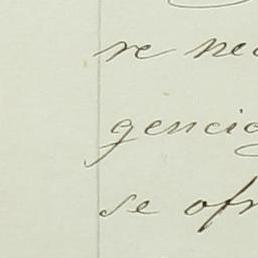 re nec
gencia
se ofr